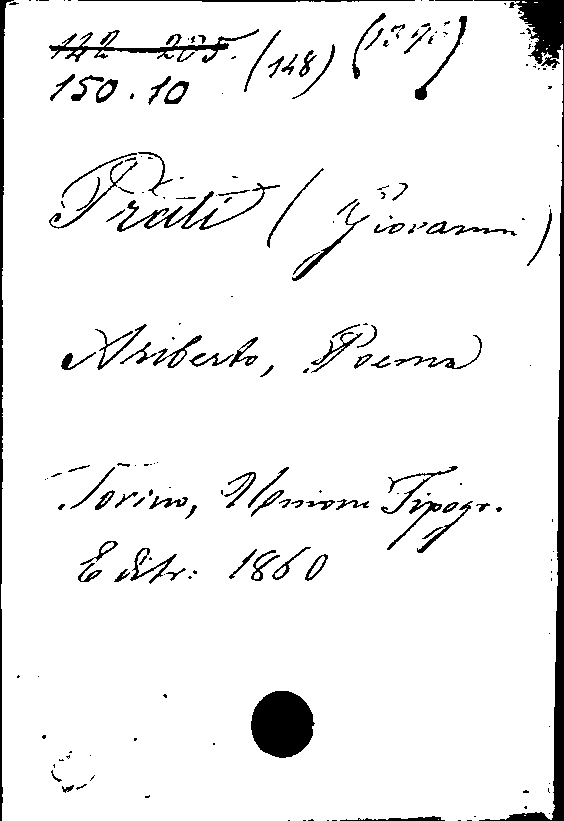 142 205. (148)
150.10
Prati (Giovanni)
Ariberto, Poema
Torino, Unione Tipogr.
Editr: 1860